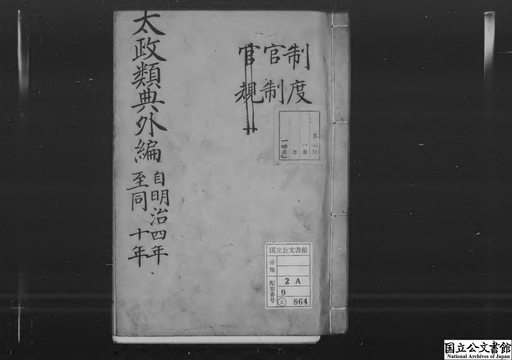 太政類典外編
自明治四年
至同十年
制度
官制
官規
国立公文書館
分類
配架番号
2 A
9
864
国立公文書館
National Archives of Japan